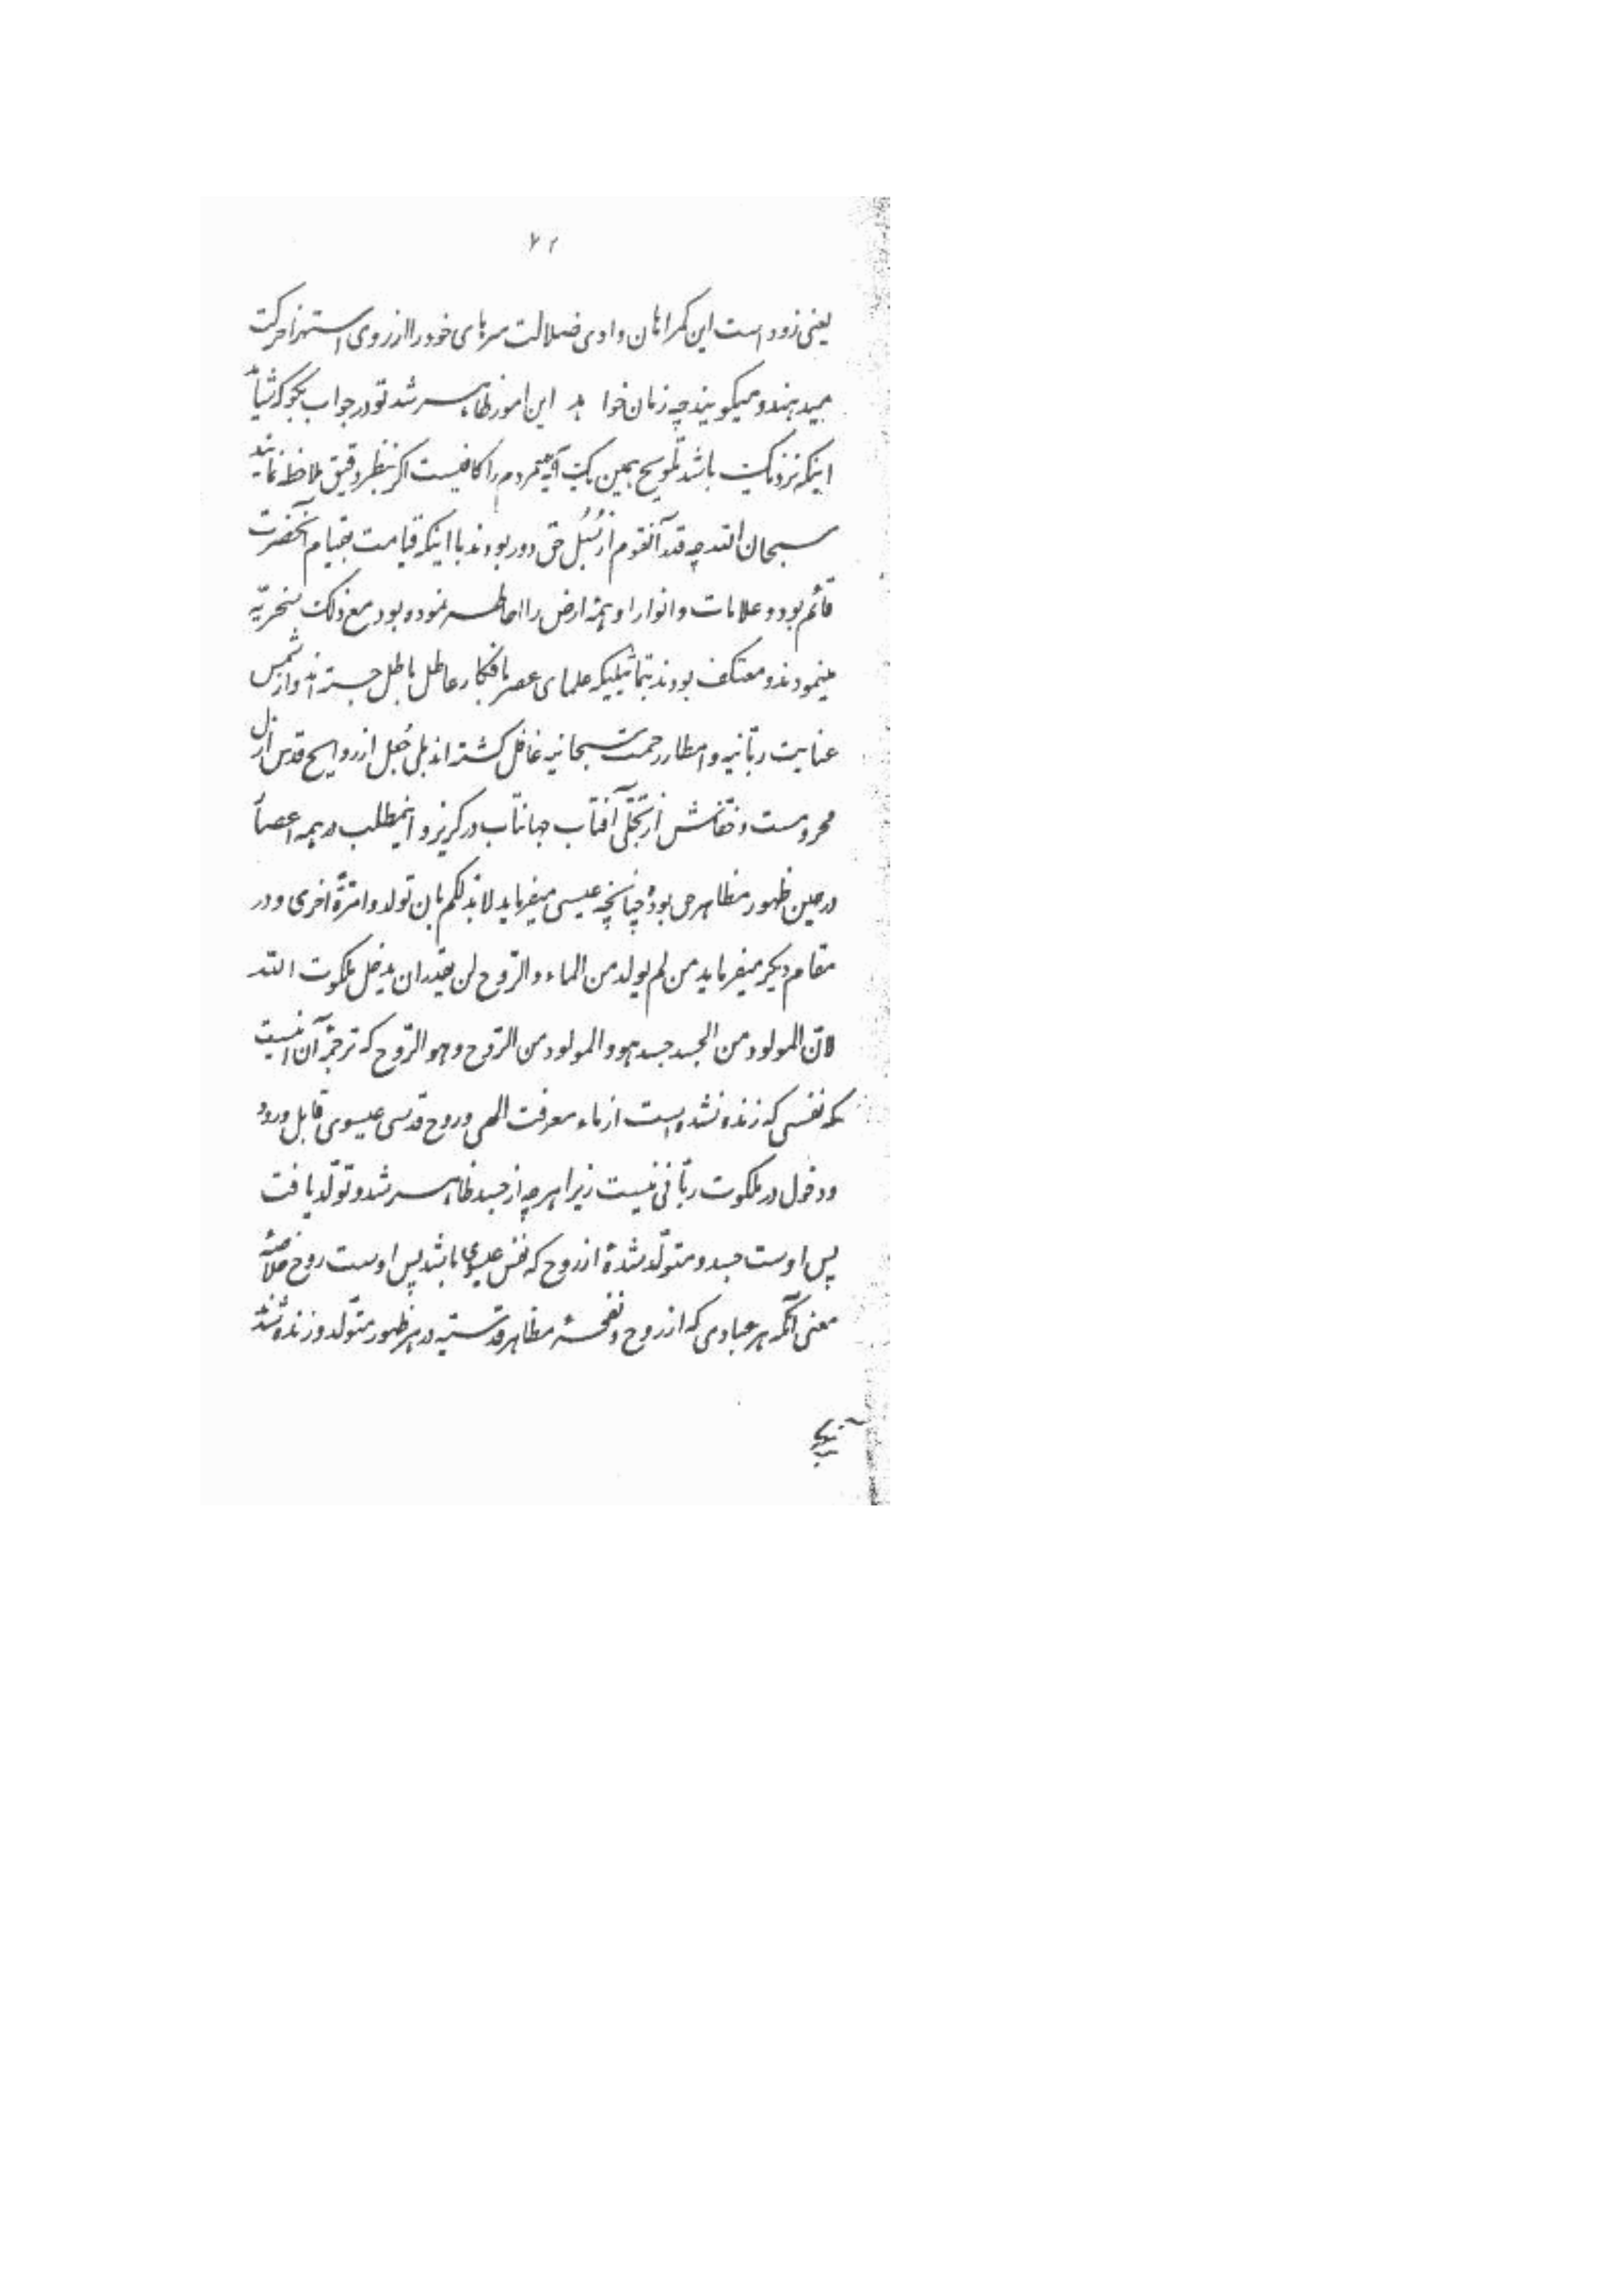 ۷۲
یعنی زود است این گمراهان وادی ضلالت سرهای خود را از روی استهزا حرکت
میدهند و میگویند چه زمان خواهد این امور ظاهر شد تو در جواب بگو که شاید
اینکه نزدیک باشد تلویح همین یک آیه مردم را کافیست اگر بنظر دقیق ملاحظه نمایند
سبحان الله چه قدر آنقوم از سُبُل حق دور بودند با اینکه قیامت بقیام آنحضرت
قائم بود و علامات و انوار او همهٔ ارض را احاطه نموده بود مع ذلک سخریّه
مینمودند و معتکف بودند بتماثیلیکه علمای عصر بافکار عاطل باطل جسته‌اند و از شمس
عنایت ربّانیه و امطار رحمت سبحانیه غافل گشته‌اند بلی جُعل از روایح قدس ازل
محرومست و خفّاش از تجلّی آفتاب جهانتاب در گریز و اینمطلب در همه اعصار
در حین ظهور مظاهر حق بوده چنانچه عیسی میفرماید لابدّ لکم بان تولدوا مرّةً اخری و در
مقام دیگر میفرماید من لم یولد من الماء و الرّوح لن یقدر ان یدخل ملکوت الله
لانّ المولود من الجسد جسد هو و المولود من الرّوح و هو الرّوح که ترجمهٔ آن اینست
که نفسی که زنده نشده است از ماء معرفت الهی و روح قدسی عیسوی قابل ورود
و دخول در ملکوت ربّانی نیست زیرا هر چه از جسد ظاهر شد و تولّد یافت
پس اوست جسد و متولّد شدهٔ از روح که نفس عیسوی باشد پس اوست روح خلاصهٔ
معنی آنکه هر عبادی که از روح و نفخهٔ مظاهر قدسیّه در هر ظهور متولّد و زنده شدند